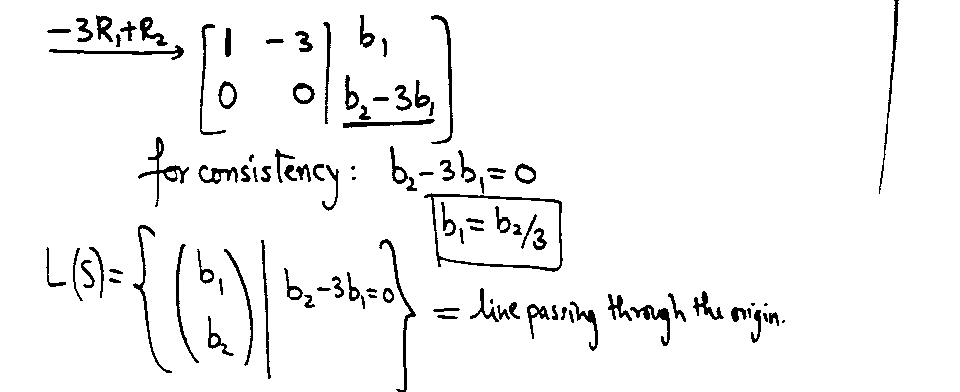 -3R₁+R₂ → [ 1 -3 | b₁
0 0 | b₂-3b₁ ]
for consistency: b₂-3b₁=0
b₁=b₂/3
L(S)={ (b₁ b₂) | b₂-3b₁=0 } = line passing through the origin.